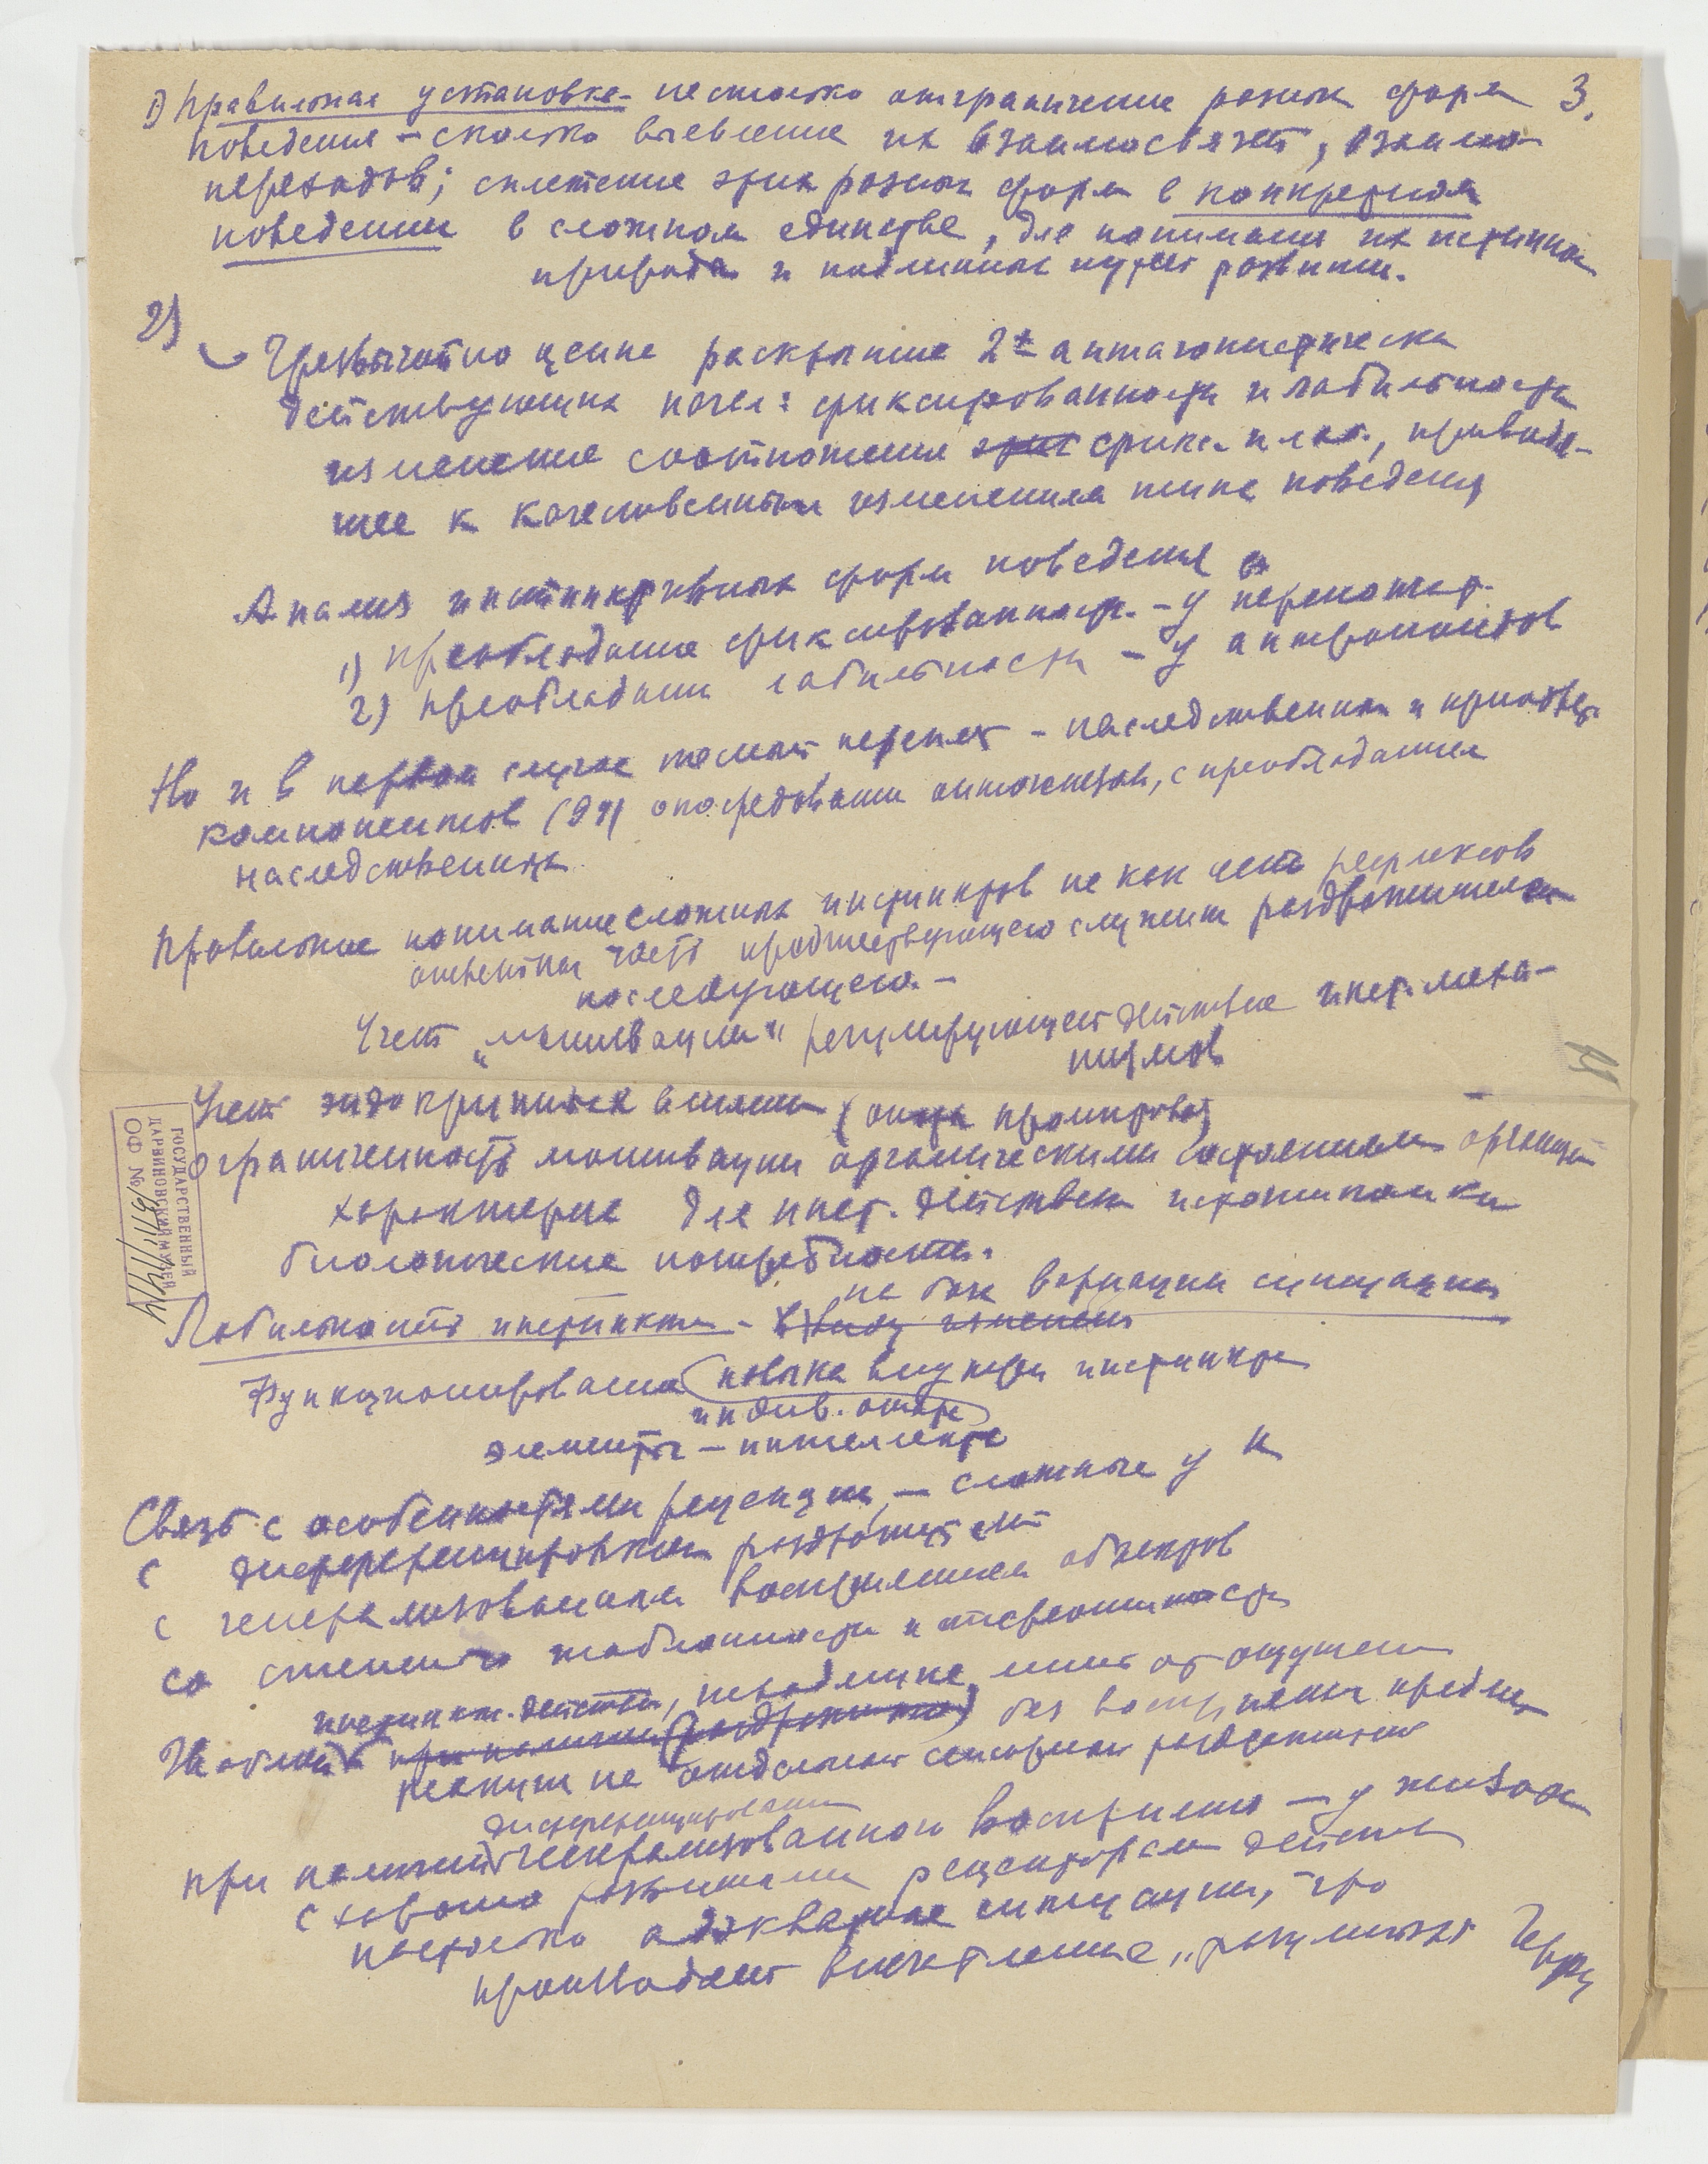 1) Правильная установка – не столько отграничение разных форм 3.
поведения – сколько выявление их взаимосвязей, взаимо
переходов; сплетение этих разных форм в конкретном
поведении в сложном единстве, для понимания их истинной
природы и подлинных путей развития.
2)
Чрезвычайно ценно раскрытие 2х антагонистически
действующих начал: фиксированности и лабильности
изменение соотношения этих фикс. и лаб., приводя-
щее к качественным изменениям типа поведения
Анализ инстинктивных форм поведения с
1) преобладание фиксированност. – у перепончат.
2) преобладание лабильности – у антропоидов
Но и в первом случае тесный переплет – наследственных и приобрет.
компонентов (99) опосредования онтогенезом, с преобладанием
наследственных
Правильное понимание сложных инстинктов не как цепь рефлексов
ответная часть предшествующего служит раздражителем
последующего. –
Учет „мотивации“ регулирующей действие инст. меха-
низмов
Учет эндокринных влияний (опыты )
Ограниченность мотивации органическими состояниями организм
характерна для инст. действий
биологические потребности.
на базе вариации ситуации
Лабильность инстинкта – ввиду изменен
Функционирование навыка внутри инстинкта
индив. опыта
элементы – интеллекта
Связь с особенностями рецепции, – сложные у н
с дифференцировкой раздражителей
с генерализованным восприятием объектов
со степенью шаблонности и стереотипности
инстинкт. действий,
Шаблон при наличии (раздражители) без восприятия предме
реакции не отдельный сенсорный раздражитель
дифференцирован
при наличии генерализованного восприятия – у животных
с хорошо развитыми рецепторами действия
настолько адекватные ситуации, что
производят впечатление „разумных“
ГОСУДАРСТВЕННЫЙ
ДАРВИНОВСКИЙ МУЗЕЙ
ОФ №